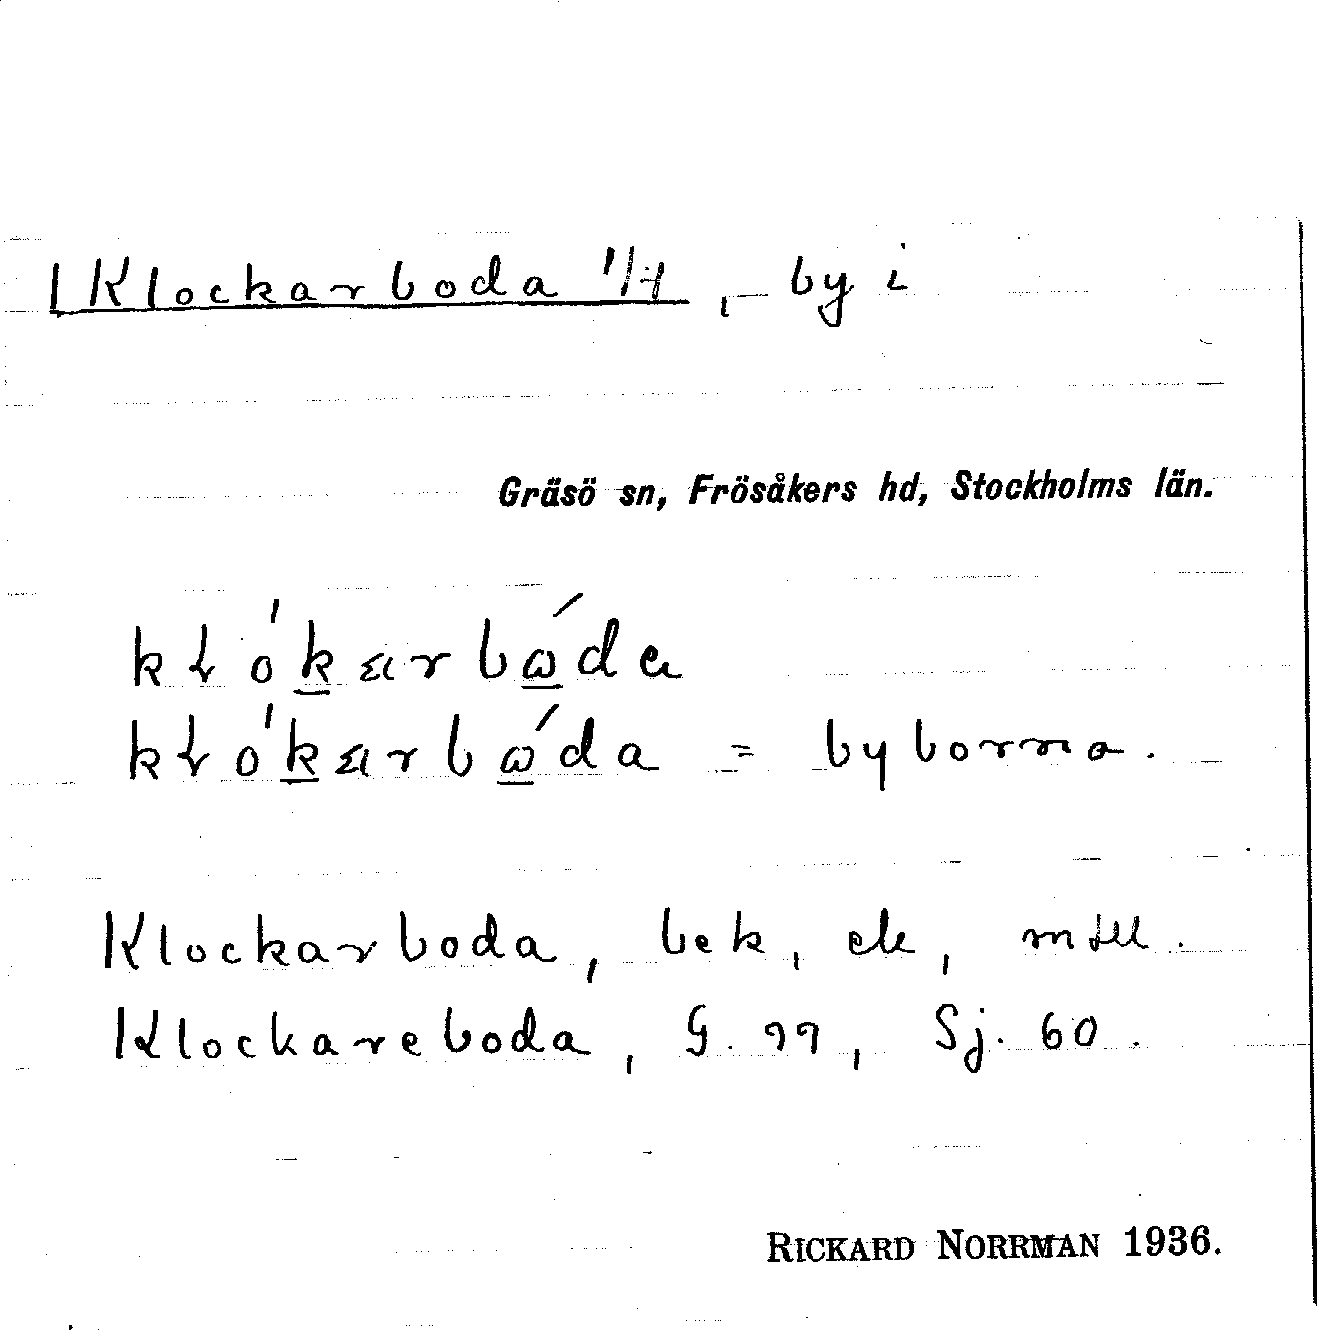 Klockarboda 1/4, by i
Gräsö sn, Frösåkers hd, Stockholms län.
kłókarbώda
kłókarbώda = byborna.
Klockarboda, bek, ek, mtll.
Klockareboda, G. 77, Sj. 60.
RICKARD NORRMAN 1936.